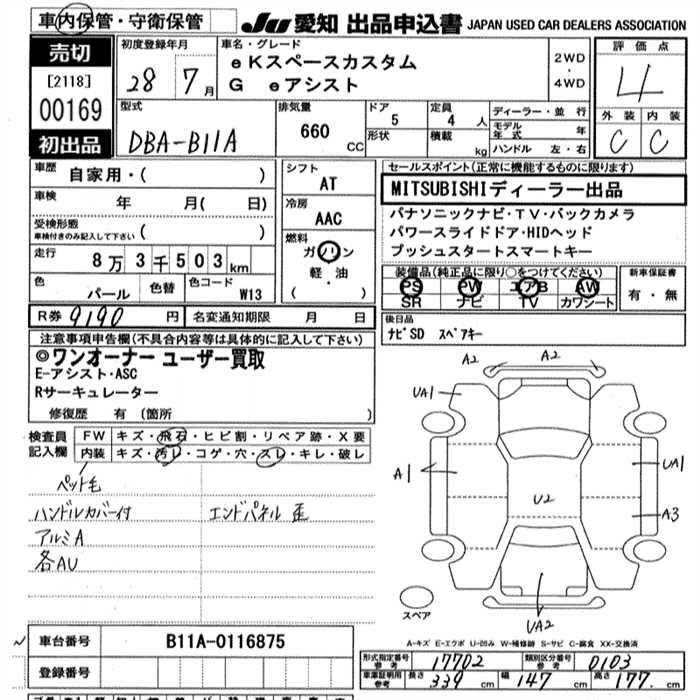 車内保管・守衛保管
JU 愛知 出品申込書 JAPAN USED CAR DEALERS ASSOCIATION
売切
[2118]
00169
初出品
初度登録年月
28 7月
車名・グレード
eKスペースカスタム
G eアシスト
2WD
・
4WD
評価点
4
外装 内装
C C
型式
DBA-B11A
排気量
660 CC
ドア 5
形状
定員 4 人
積載 kg
ディーラー・並行
モデル年式 年
ハンドル 左・右
車歴
自家用・( )
車検 年 月( 日)
受検形態
車検付きのみ記入して下さい ( )
走行 8万3千503km
色 パール 色替 色コード W13
シフト
AT
冷房
AAC
燃料
ガソリン
軽・油
( )
セールスポイント(正常に機能するものに限ります)
MITSUBISHIディーラー出品
パナソニックナビ・TV・バックカメラ
パワースライドドア・HIDヘッド
プッシュスタートスマートキー
装備品(純正品に限り○をつけてください)
PS PW エアB AW
SR ナビ TV カワシート
新車保証書
有・無
R券 9190 円 名変通知期限 月 日
後日品
ナビSD スペアキー
注意事項申告欄(不具合内容等は具体的に記入して下さい)
◎ワンオーナー ユーザー買取
E-アシスト・ASC
Rサーキュレーター
修復歴 有 (箇所 )
検査員記入欄
FW キズ・飛石・ヒビ割・リペア跡・X要
内装 キズ・汚レ・コゲ・穴・スレ・キレ・破レ
ペット毛
ハンドルカバー付 エンドパネル歪
アルミA
各AU
A2 A2
UA1
A1 UA1
U2 A3
UA2
スペア
A-キズ E-エクボ U-凹み W-補修跡 S-サビ C-腐食 XX-交換済
車台番号 B11A-0116875
登録番号
形式指定番号 参考 17702 類別区分番号 参考 0103
車庫証明用参考 長さ 339 cm 幅 147 cm 高さ 177 cm